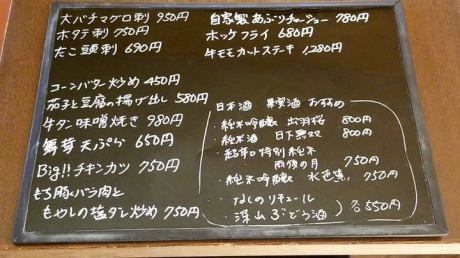 大バチマグロ刺 950円
ホタテ刺 750円
たこ頭刺 690円
コーンバター炒め 450円
茄子と豆腐の揚げ出し 580円
牛タン味噌焼き 980円
舞茸天ぷら 650円
Big!! チキンカツ 750円
もち豚バラ肉と
もやしの塩ダレ炒め 750円
自家製あぶりチャーシュー 780円
ホッケフライ 680円
牛モモカットステーキ 1,280円
日本酒 果実酒 おすすめ
・純米吟醸 出羽桜 800円
・純米酒 日下無双 800円
・結芽の 特別純米
雨後の月 750円
・純米吟醸 水芭蕉 750円
・なしのリキュール
・深山ぶどう酒 各550円